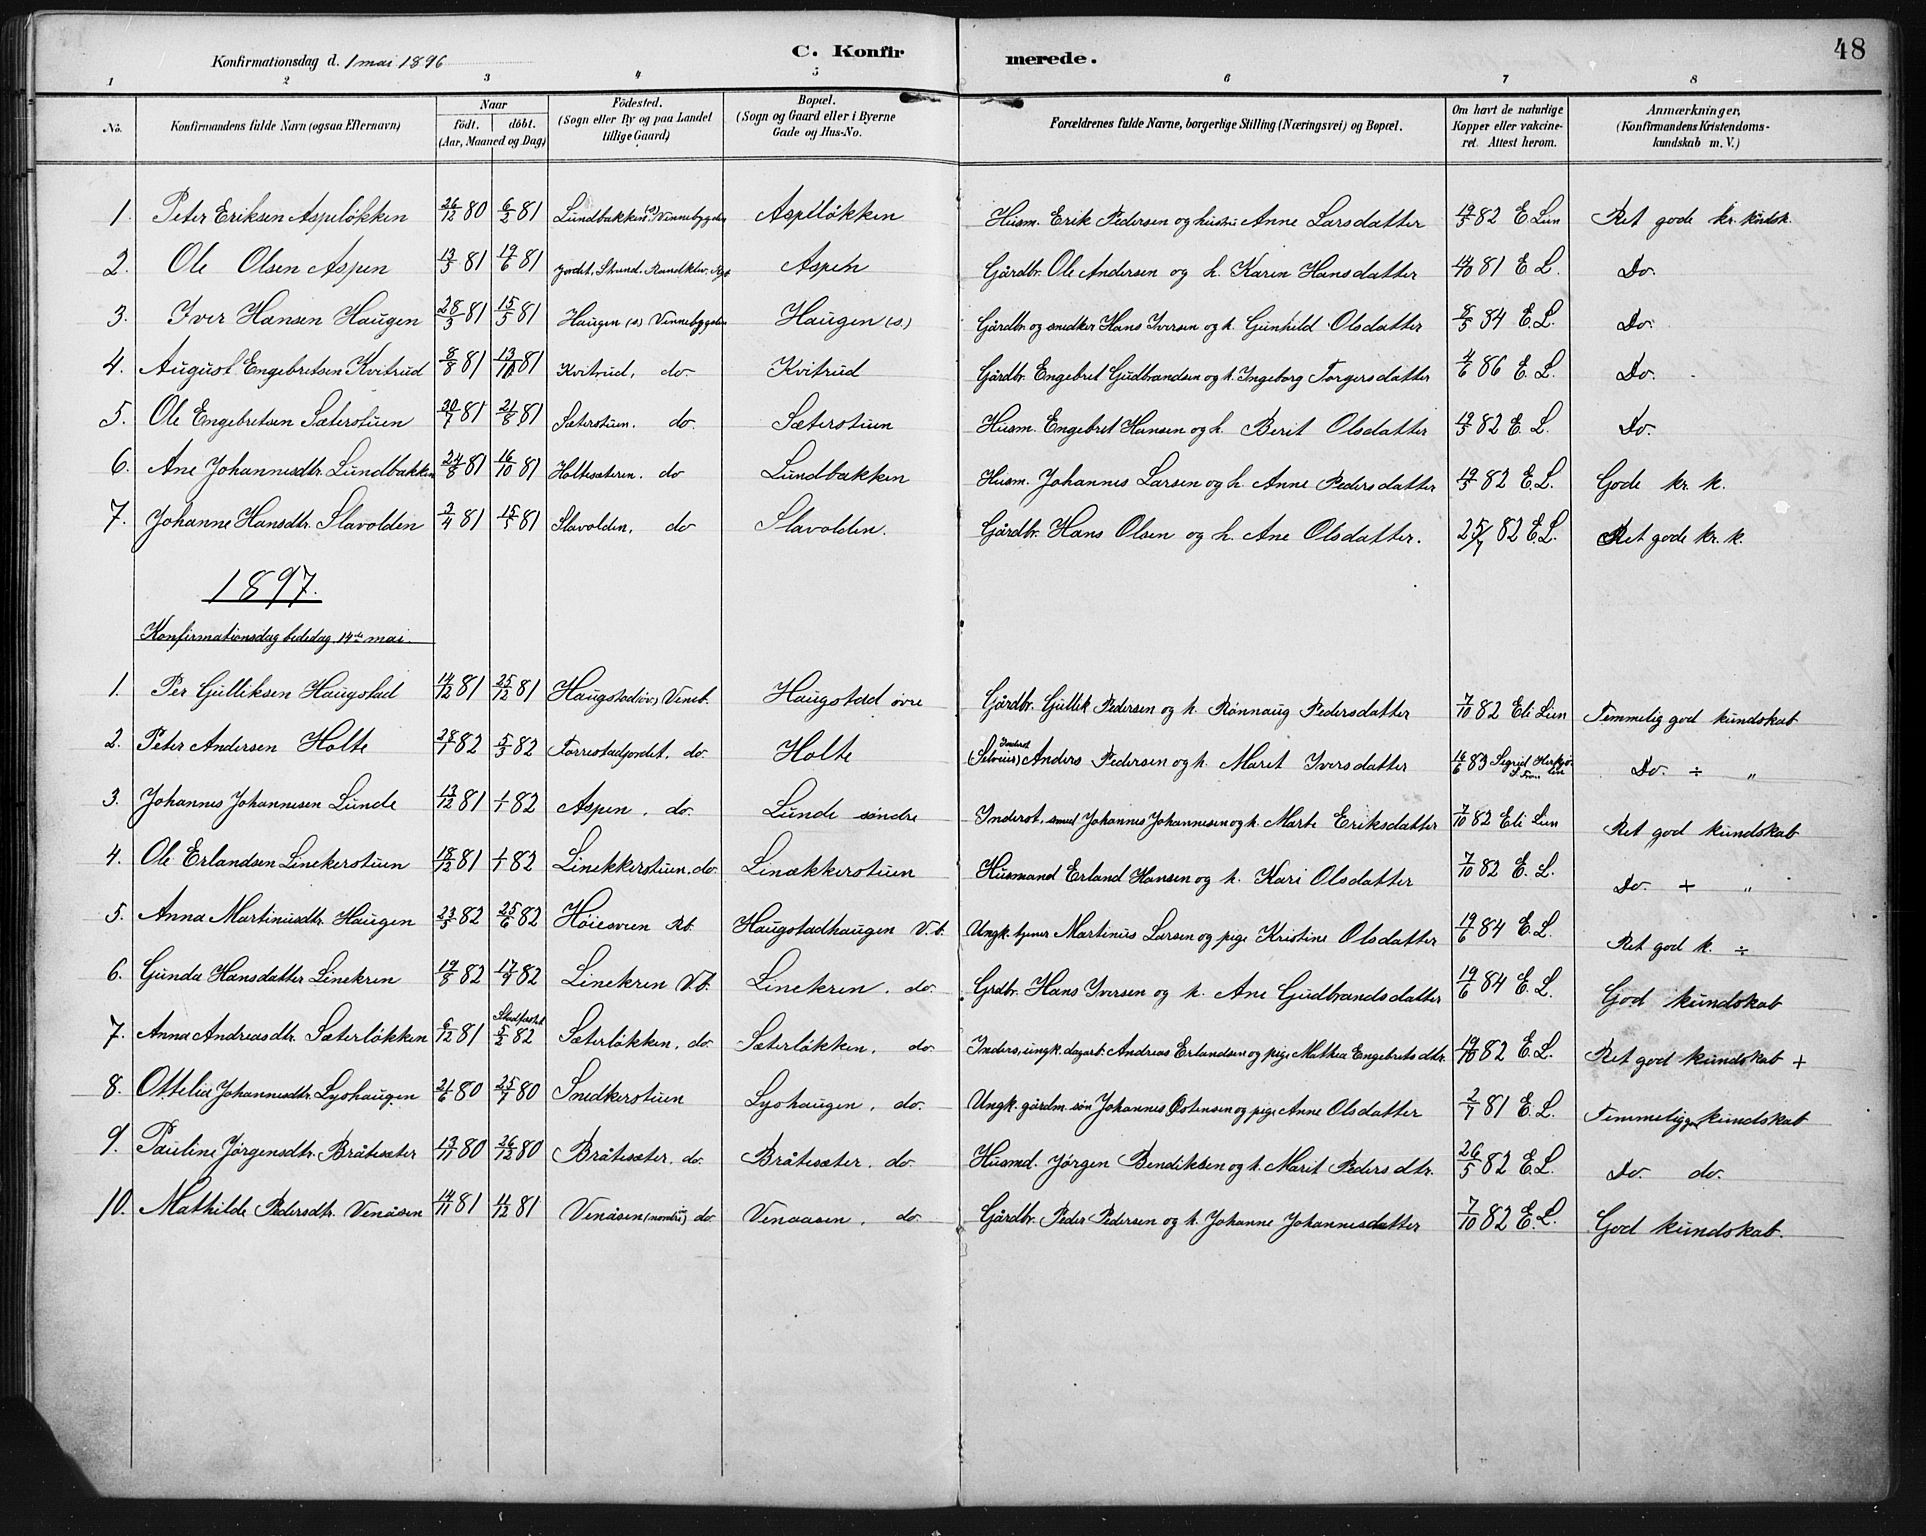 48
Konfirmationsdag d. 1 mai 1896
C. Konfirmerede.
1 2 3 4 5 6 7 8
No. Konfirmandens fulde Navn (ogsaa Efternavn) Naar født. døbt. (Aar, Maaned og Dag) Fødested. (Sogn eller By og paa Landet tillige Gaard) Bopæl. (Sogn og Gaard eller i Byerne Gade og Hus-No. Forældrenes fulde Navne, borgerlige Stilling (Næringsvei) og Bopæl. Om havt de naturlige Kopper eller vakcineret. Attest herom. Anmærkninger, (Konfirmandens Kristendomskundskab m. V.)
1. Peter Eriksen Aspeløkken 26/12 80 6/2 81 Lundbakken Vennebygden Aspeløkken Husm. Erik Pedersen og hustru Anne Larsdatter 19/5 82 E Lun Ret gode kr. kundsk.
2. Ole Olsen Aspen 13/5 81 19/6 81 jordet, Strand. Aspen Gårdbr. Ole Andersen og h. Karen Hansdatter 14/10 81 E L. Do.
3. Iver Hansen Haugen 28/3 81 15/5 81 Haugen (s) Vennebygden Haugen (s.) Gårdbr og snedker Hans Iversen og h. Gunhild Olsdatter 8/5 84 E. L. Do.
4. August Engebretsen Kvitrud 8/8 81 13/10 81 Kvitrud, do. Kvitrud Gårdbr. Engebret Gudbrandsen og h. Ingeborg Torgersdatter 4/6 86 E. L. Do.
5. Ole Engebretsen Sæterstuen 20/7 81 21/8 81 Sæterstuen. do. Sæterstuen Husm. Engebret Hansen og h. Berit Olsdatter 19/5 82 E. L. Do.
6. Ane Johannesdtr. Lundbakken 24/8 81 16/10 81 Holtesæteren. do Lundbakken Husm. Johannes Larsen og h. Anne Pedersdatter 19/5 82 E. L. Gode kr. k.
7. Johanne Hansdtr. Slavolden 2/4 81 15/5 81 Slavolden. do Slavolden. Gårdbr. Hans Olsen og h. Ane Olsdatter. 25/7 82 E. L. Ret gode kr. k.
1897.
Konfirmationsdag bededag 14de mai.
1. Per Gulliksen Haugstad 14/12 81 25/12 81 Haugstad (øv.) Veneb. Haugstad øvre Gårdbr. Gullik Pedersen og h. Rønnaug Pedersdatter 7/10 82 Eli Lun Temmelig god kundskab
2. Peter Andersen Holte 28/1 82 5/3 82 Forrestadjordet. do. Holte (Selveier) Inderst Anders Pedersen og h. Marit Iversdatter 16/6 83 Sigrid Do. ÷ "
3. Johannes Johannesen Lunde 13/12 81 1/1 82 Aspen. do. Lunde søndre Inderst, smed Johannes Johannesen og h. Marte Eriksdatter 7/10 82 Eli Lun Ret god kundskab
4. Ole Erlandsen Linekerstuen 18/12 81 1/1 82 Linekkerstuen. do. Linækkerstuen Husmand Erland Hansen og h. Kari Olsdatter 7/10 82 E. L. Do. + "
5. Anna Martinusdtr. Haugen 23/5 82 25/6 82 Høiesveen Rb. Haugstadhaugen V. b. Ungk. tjener Martinus Larsen og pige Kristine Olsdatter 19/6 84 E. L. Ret god k. ÷
6. Gunda Hansdatter Linekren 19/8 82 17/9 82 Linekren V.b. Linekren. do. Grdbr. Hans Iversen og h. Ane Gudbrandsdatter 19/6 84 E. L. God kundskab
7. Anna Andreasdtr. Sæterløkken 6/12 81 Stadfæstet 5/2 82 Sæterløkken. do. Sæterløkken. do. Inders, ungk. dagarb. Andreas Erlandsen og pige Mathea Engebretsdtr. 19/10 82 E. L. Ret god kundskab +
8. Ottelia Johannesdtr. Lyshaugen 21/6 80 25/7 80 Snedkerstuen Lyshaugen. do. Ungk. gårdm. søn Johannes Østensen og pige Anne Olsdatter 2/7 81 E. L. Temmelig god kundskab
9. Pauline Jørgensdtr. Bråtesæter 13/11 80 26/12 80 Bråtesæter. do. Bråtesæter. do. Husmd. Jørgen Bendiksen og h. Marit Pedersdtr. 26/5 82 E. L. Do. do.
10. Mathilde Pedersdtr. Venåsen 14/11 81 11/12 81 Venåsen (nordre) do. Venaasen. do. Gårdbr. Peder Pedersen og h. Johanne Johannesdatter 7/10 82 E. L. God kundskab.